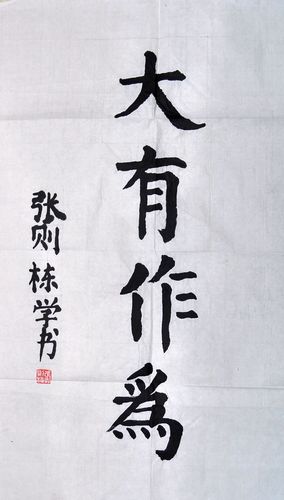 大有作爲
张则栋学书